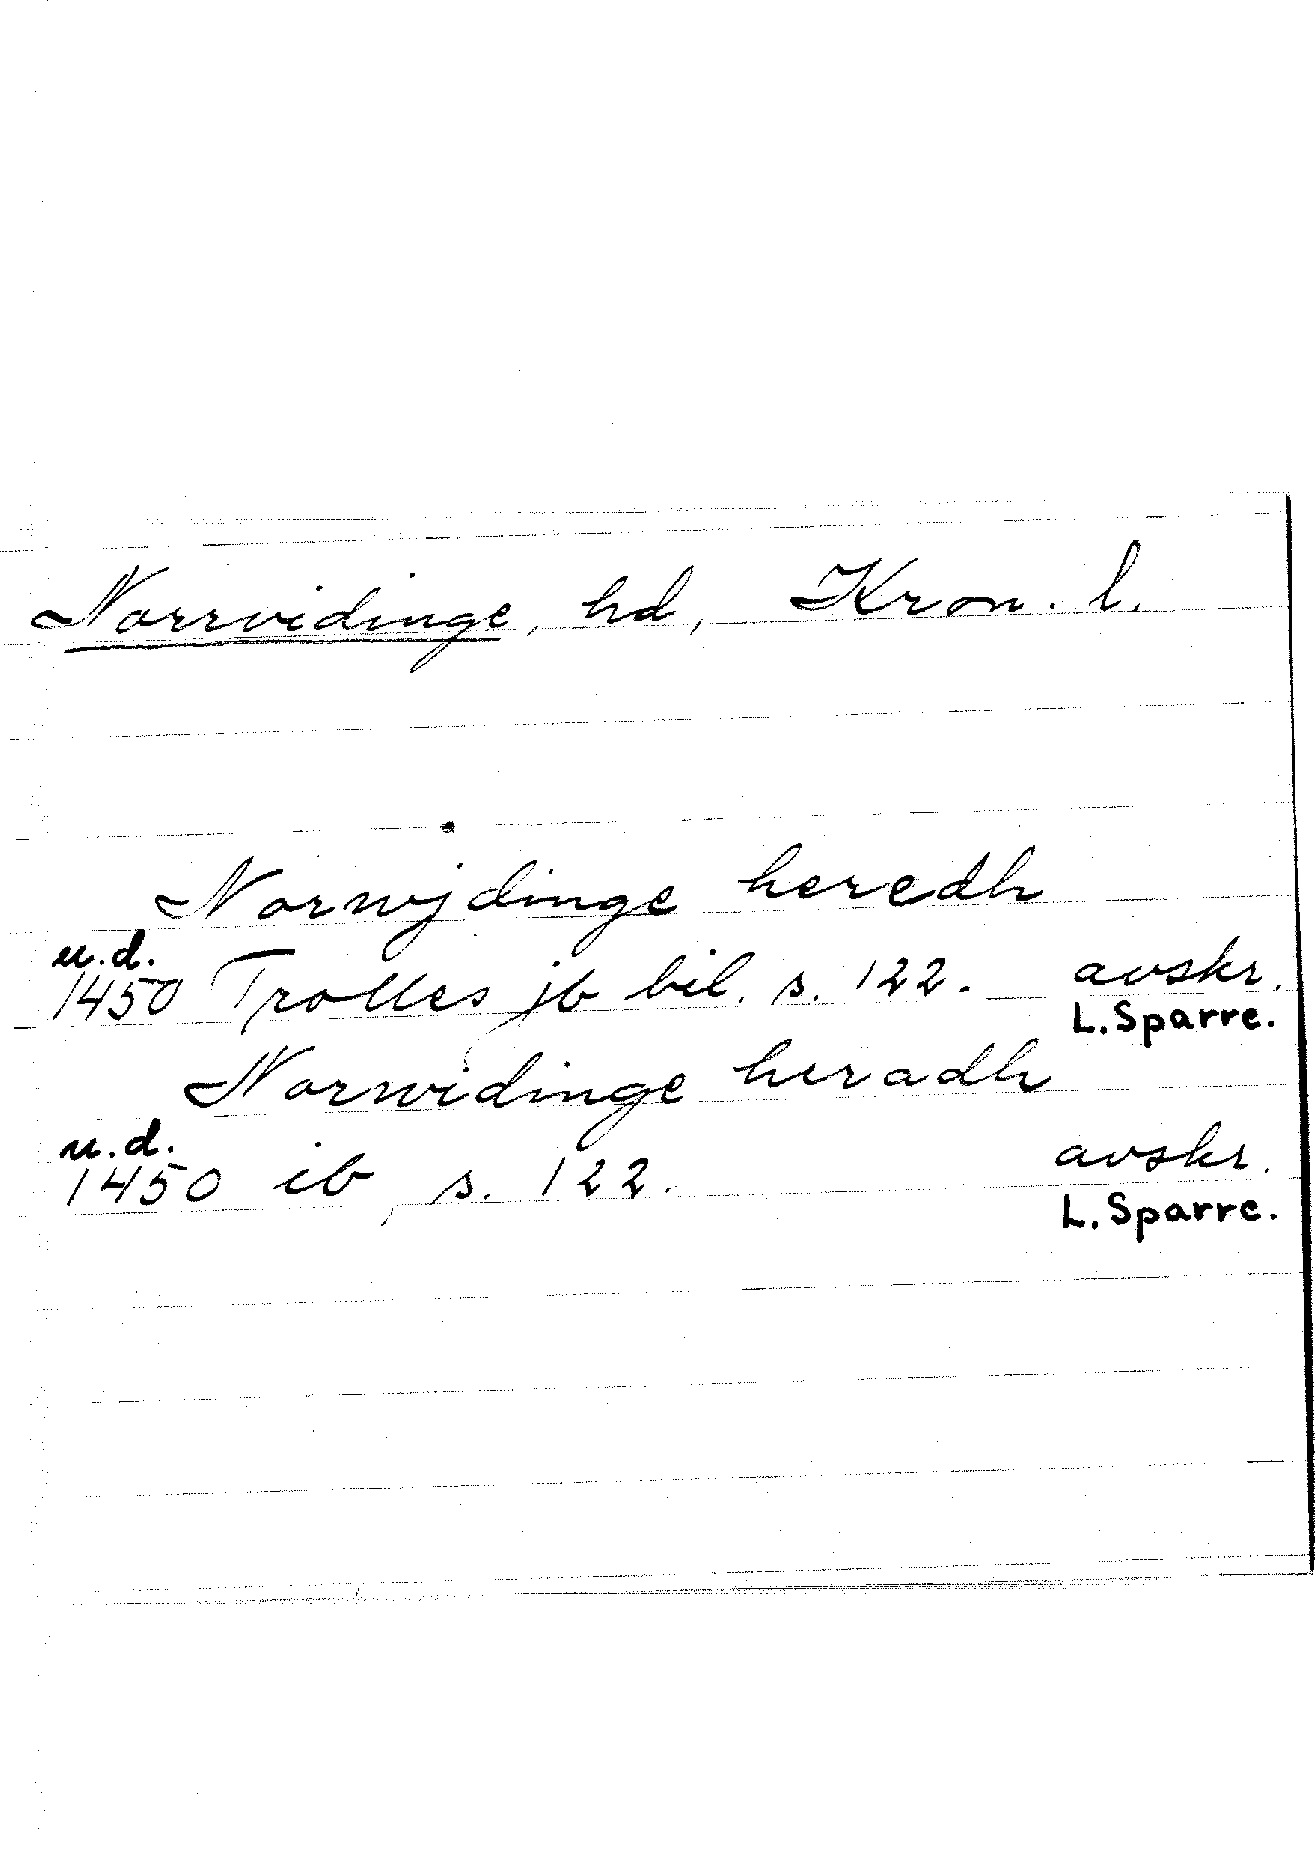 Norrvidinge, hd, Kron. l.
Norwjdinge heredh
u.d.
1450 Trolles jb bil. s. 122. avskr.
L. Sparre.
Norwidinge heradh
u.d.
1450 ib, s. 122. avskr.
L. Sparre.